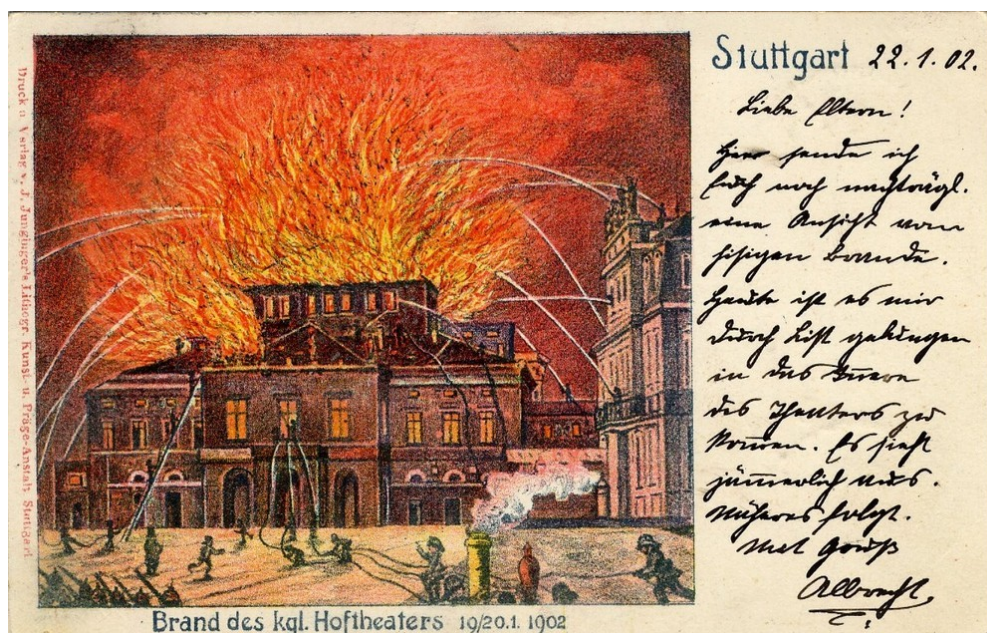 Druck u. Verlag v. J. Junginger's Lithogr. Kunst- u. Präge-Anstalt Stuttgart
Brand des kgl. Hoftheaters 19/20.1. 1902
Stuttgart 22.1.02.
Liebe Eltern!
Hier sende ich
Euch noch nachträgl.
eine Ansicht vom
hisigen Brande.
Heute ist es mir
durch List gelungen
in das Innere
des Theaters zu
kommen. Es sieht
jämmerlich aus.
Näheres folgt.
Mit Gruß
Albrecht.